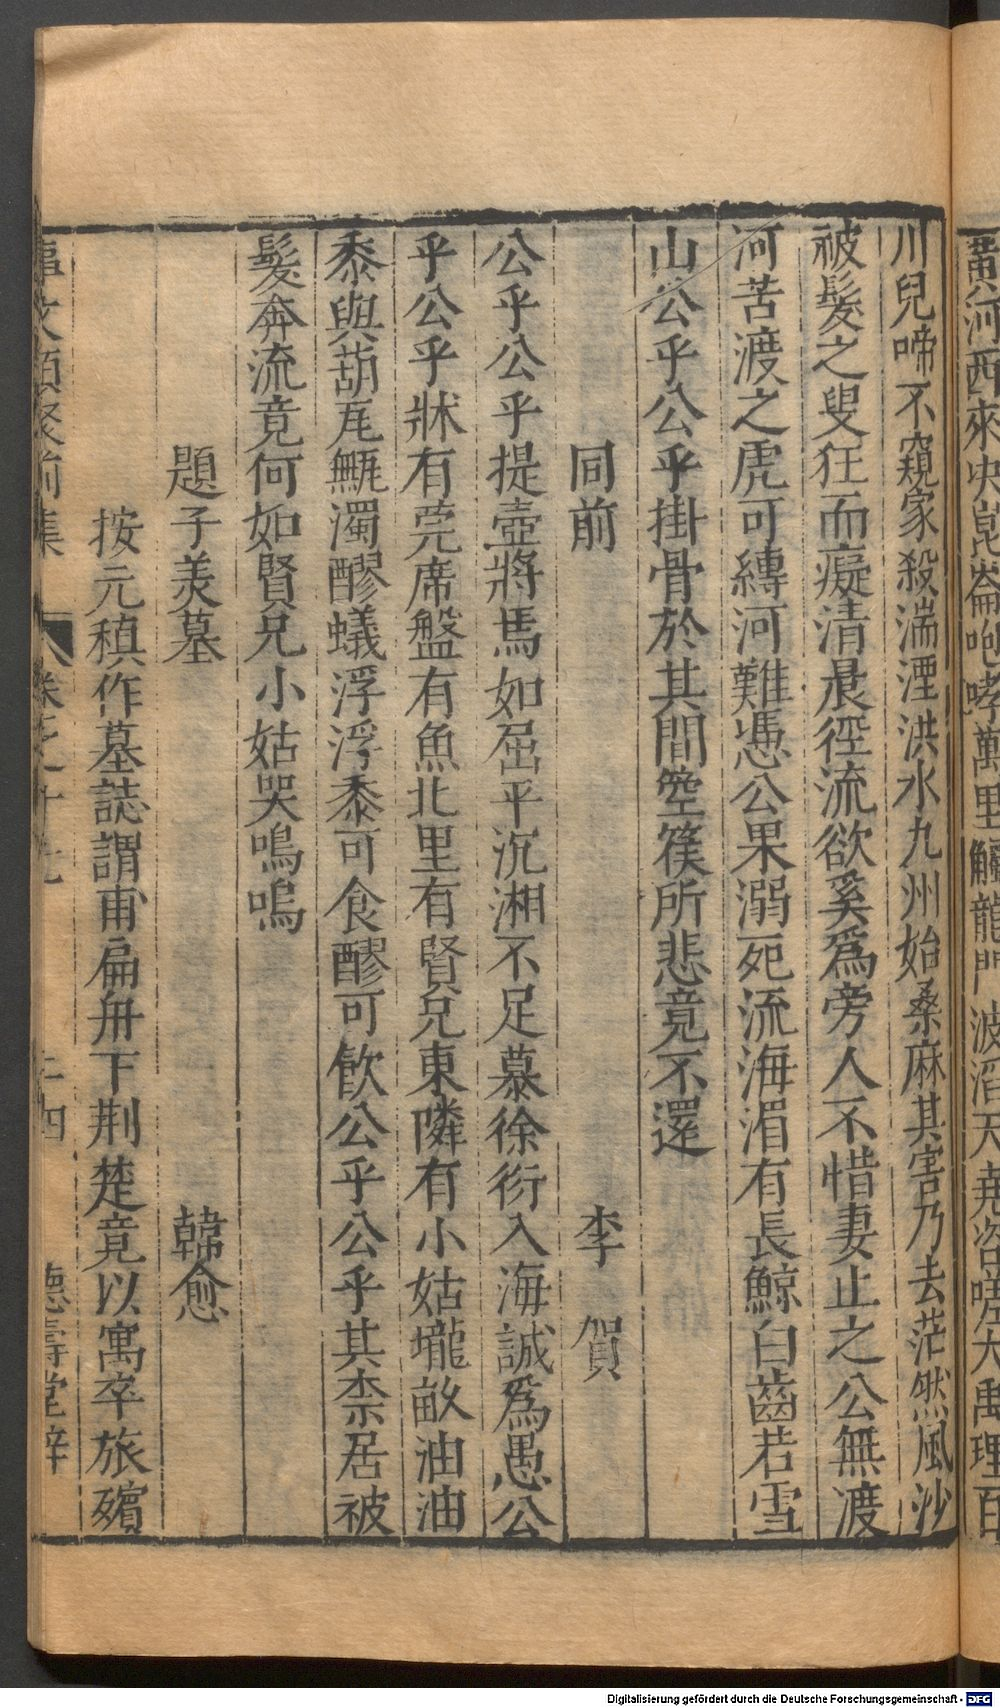 黃河西來決崑崙咆哮萬里觸龍門波滔天堯咨嗟大禹理百
川兒啼不窺家殺湍湮洪水九州始桑麻其害乃去茫然風沙
被髮之叟狂而癡清晨徑流欲奚爲旁人不惜妻止之公無渡
河苦渡之虎可縛河難憑公果溺死流海湄有長鯨白齒若雪
山公乎公乎掛骨於其間箜篌所悲竟不還
同前 李賀
公乎公乎提壺將焉如屈平沉湘不足慕徐衍入海誠爲愚公
乎公乎牀有莞席盤有魚北里有賢兄東隣有小姑壠畝油油
黍與葫瓦甒濁醪蟻浮浮黍可食醪可飲公乎公乎其柰居被
髮奔流竟何如賢兄小姑哭嗚嗚
題子美墓 韓愈
按元稹作墓誌謂甫扁舟下荆楚竟以寓卒旅殯
事文類聚前集 卷之十七 二四 德壽堂梓
Digitalisierung gefördert durch die Deutsche Forschungsgemeinschaft - DFG